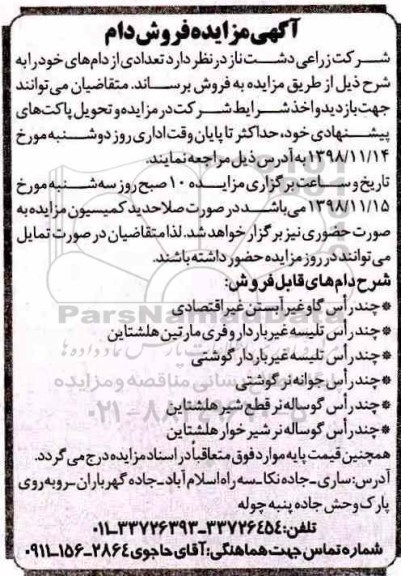 آگهی مزایده فروش دام
شرکت زراعی دشت ناز در نظر دارد تعدادی از دام‌های خود را به
شرح ذیل از طریق مزایده به فروش برساند. متقاضیان می‌توانند
جهت بازدید و اخذ شرایط شرکت در مزایده و تحویل پاکت‌های
پیشنهادی خود، حداکثر تا پایان وقت اداری روز دوشنبه مورخ
۱۳۹۸/۱۱/۱۴ به آدرس ذیل مراجعه نمایند.
تاریخ و ساعت برگزاری مزایده ۱۰ صبح روز سه‌شنبه مورخ
۱۳۹۸/۱۱/۱۵ می‌باشد در صورت صلاحدید کمیسیون مزایده به
صورت حضوری نیز برگزار خواهد شد. لذا متقاضیان در صورت تمایل
می‌توانند در روز مزایده حضور داشته باشند.
شرح دام‌های قابل فروش:
*چند رأس گاو غیر آبستن غیر اقتصادی
*چند رأس تلیسه غیر باردار و فری مارتین هلشتاین
*چند رأس تلیسه غیر باردار گوشتی
*چند رأس جوانه نر گوشتی
*چند رأس گوساله نر قطع شیر هلشتاین
*چند رأس گوساله نر شیرخوار هلشتاین
همچنین قیمت پایه موارد فوق متعاقباً در اسناد مزایده درج می گردد.
آدرس: ساری_جاده نکا_سه راه اسلام آباد_جاده گهرباران_روبه‌روی
پارک وحش جاده پنبه چوله
تلفن: ۳۳۷۲۶۴۵۴_۳۳۷۲۶۳۹۳_۰۱۱
شماره تماس جهت هماهنگی: آقای حاجوی ۲۸۶۴_۱۵۶_۰۹۱۱
ParsNamadData